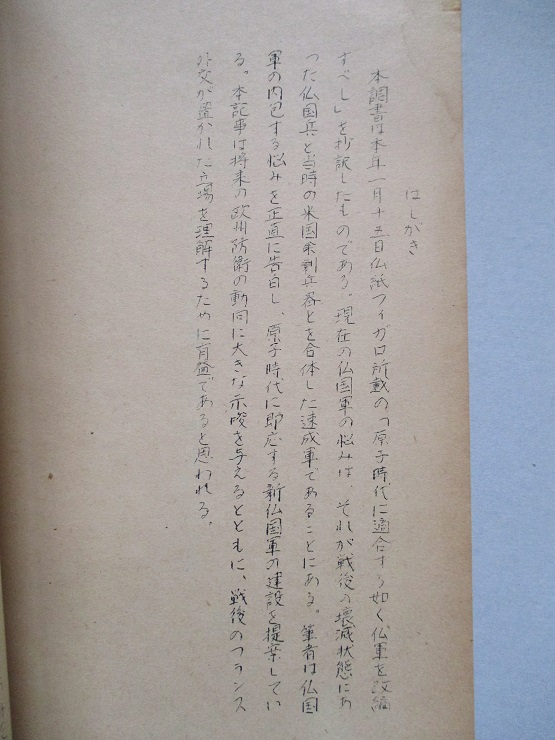 はしがき
本調書は本年一月十五日仏紙フィガロ所載の「原子時代に適合する如く仏軍を改編
すべし」を抄訳したものである。現在の仏国軍の悩みは、それが戦後の壊滅状態にあ
った仏国兵と当時の米国余剰兵器とを合体した速成軍であることにある。筆者は仏国
軍の内包する悩みを正直に告白し、原子時代に即応する新仏国軍の建設を提案してい
る。本記事は将来の欧州防衛の動向に大きな示唆を与えるとともに、戦後のフランス
外交が置かれた立場を理解するために有益であると思われる。